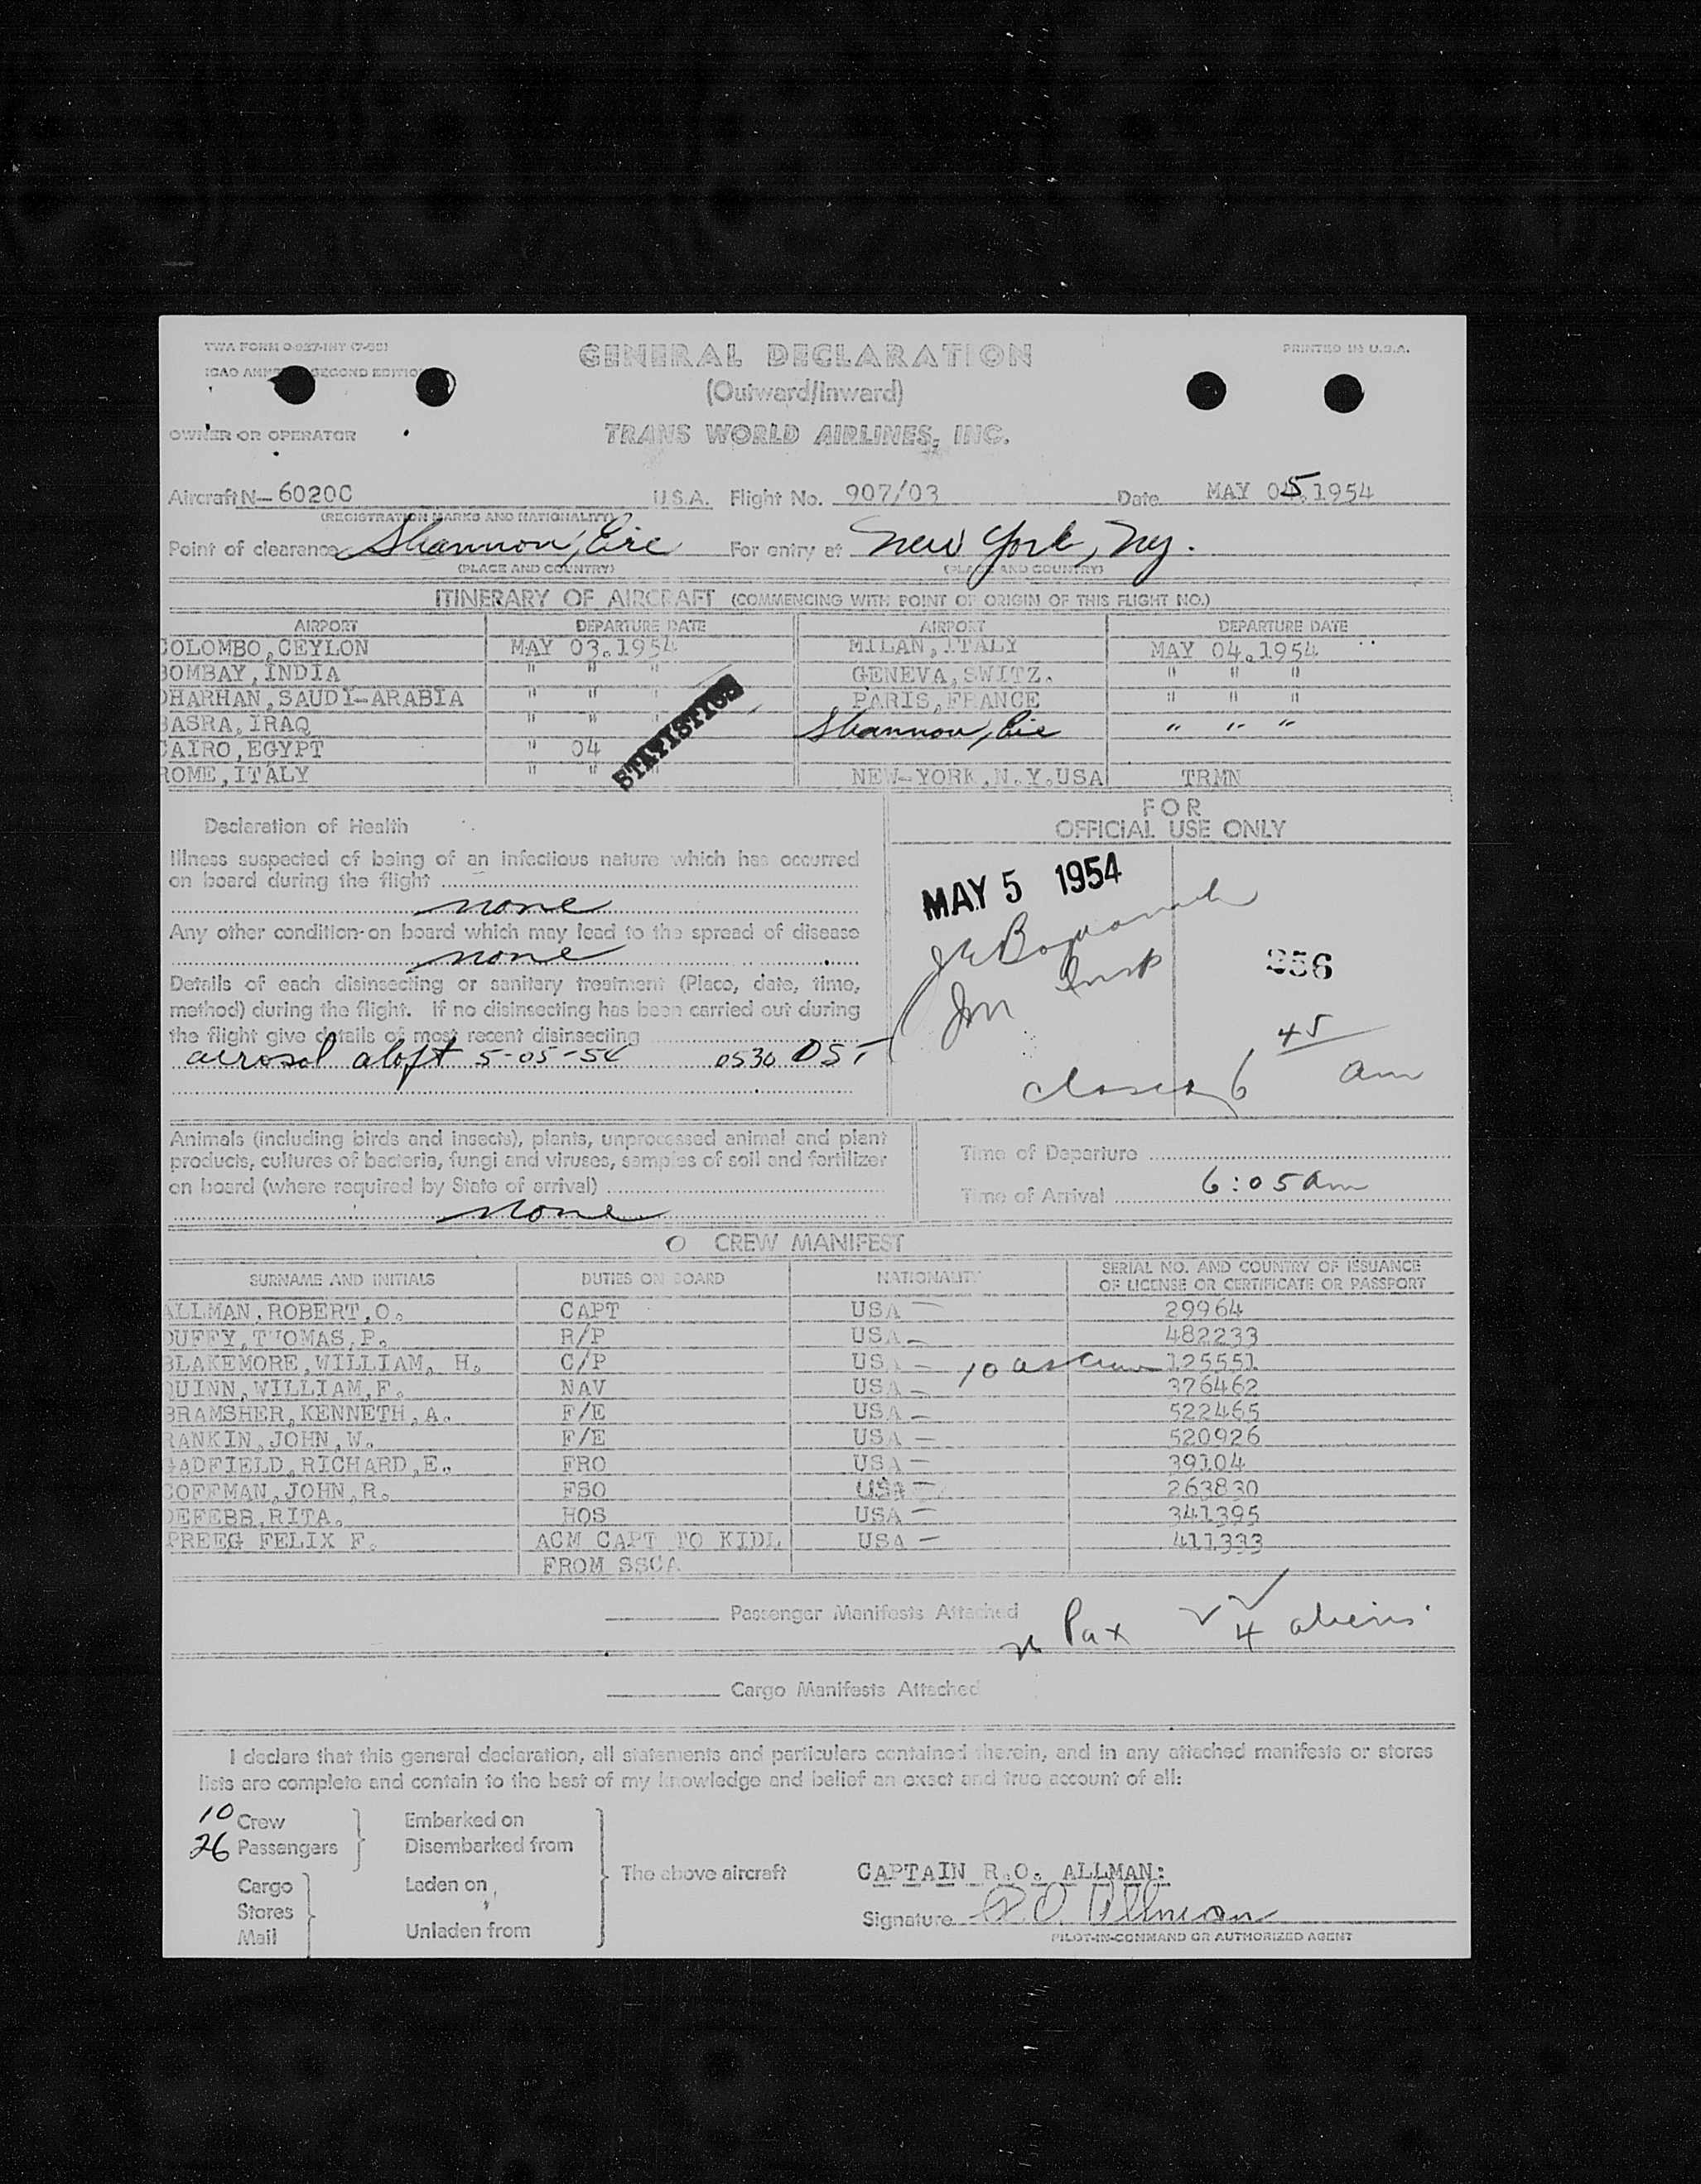 TWA FORM O-927-INT (7-53) PRINTED IN U.S.A.
GENERAL DECLARATION
ICAO SECOND
(Outward/Inward)
OWNER OR OPERATOR TRANS WORLD AIRLINES, INC.
Aircraft N-6020C U.S.A. Flight No. 907/03 Date MAY 05.1954
(REGISTRATION MARKS AND NATIONALITY)
Point of clearance Shannon, Eire For entry at New York, Ny.
(PLACE AND COUNTRY) (PLACE AND COUNTRY)
ITINERARY OF AIRCRAFT (COMMENCING WITH POINT OF ORIGIN OF THIS FLIGHT NO.)
AIRPORT DEPARTURE DATE AIRPORT DEPARTURE DATE
COLOMBO,CEYLON MAY 03.1954 MILAN,ITALY MAY 04.1954
BOMBAY,INDIA " " " GENEVA,SWITZ. " " "
DHARHAN,SAUDI-ARABIA " " " PARIS,FRANCE " " "
BASRA,IRAQ " " " Shannon, Eire " " "
CAIRO,EGYPT " 04
ROME,ITALY " " " NEW-YORK,N.Y.USA TRMN
STATISTICS
FOR
OFFICIAL USE ONLY
Declaration of Health
Illness suspected of being of an infectious nature which has occurred
on board during the flight
none
Any other condition on board which may lead to the spread of disease
none
Details of each disinsecting or sanitary treatment (Place, date, time,
method) during the flight. If no disinsecting has been carried out during
the flight give details of most recent disinsecting
aerosol aloft 5-05-54 0530 DST
MAY 5 1954
Im Insp
256
closed 6 45 am
Animals (including birds and insects), plants, unprocessed animal and plant
products, cultures of bacteria, fungi and viruses, samples of soil and fertilizer
on board (where required by State of arrival)
none
Time of Departure
Time of Arrival 6:05 am
O CREW MANIFEST
SURNAME AND INITIALS DUTIES ON BOARD NATIONALITY SERIAL NO. AND COUNTRY OF ISSUANCE
OF LICENSE OR CERTIFICATE OR PASSPORT
ALLMAN,ROBERT,O. CAPT USA 29964
DUFFY,THOMAS,P. R/P USA 482233
BLAKEMORE,WILLIAM, H. C/P USA 10 as crew 125551
QUINN,WILLIAM,F. NAV USA 376462
BRAMSHER,KENNETH,A. F/E USA 522465
RANKIN,JOHN,W. F/E USA 520926
HADFIELD,RICHARD,E. FRO USA 39104
COFFMAN,JOHN,R. FSO USA 263830
DEFEBB,RITA. HOS USA 341395
PREEG FELIX F. ACM CAPT TO KIDL USA 411333
FROM SSCA
Passenger Manifests Attached
Pax 4 aliens
Cargo Manifests Attached
I declare that this general declaration, all statements and particulars contained therein, and in any attached manifests or stores
lists are complete and contain to the best of my knowledge and belief an exact and true account of all:
10 Crew Embarked on
26 Passengers Disembarked from
The above aircraft CAPTAIN R.O. ALLMAN:
Cargo Laden on
Stores
Signature R.O. Allman
Mail Unladen from
PILOT-IN-COMMAND OR AUTHORIZED AGENT